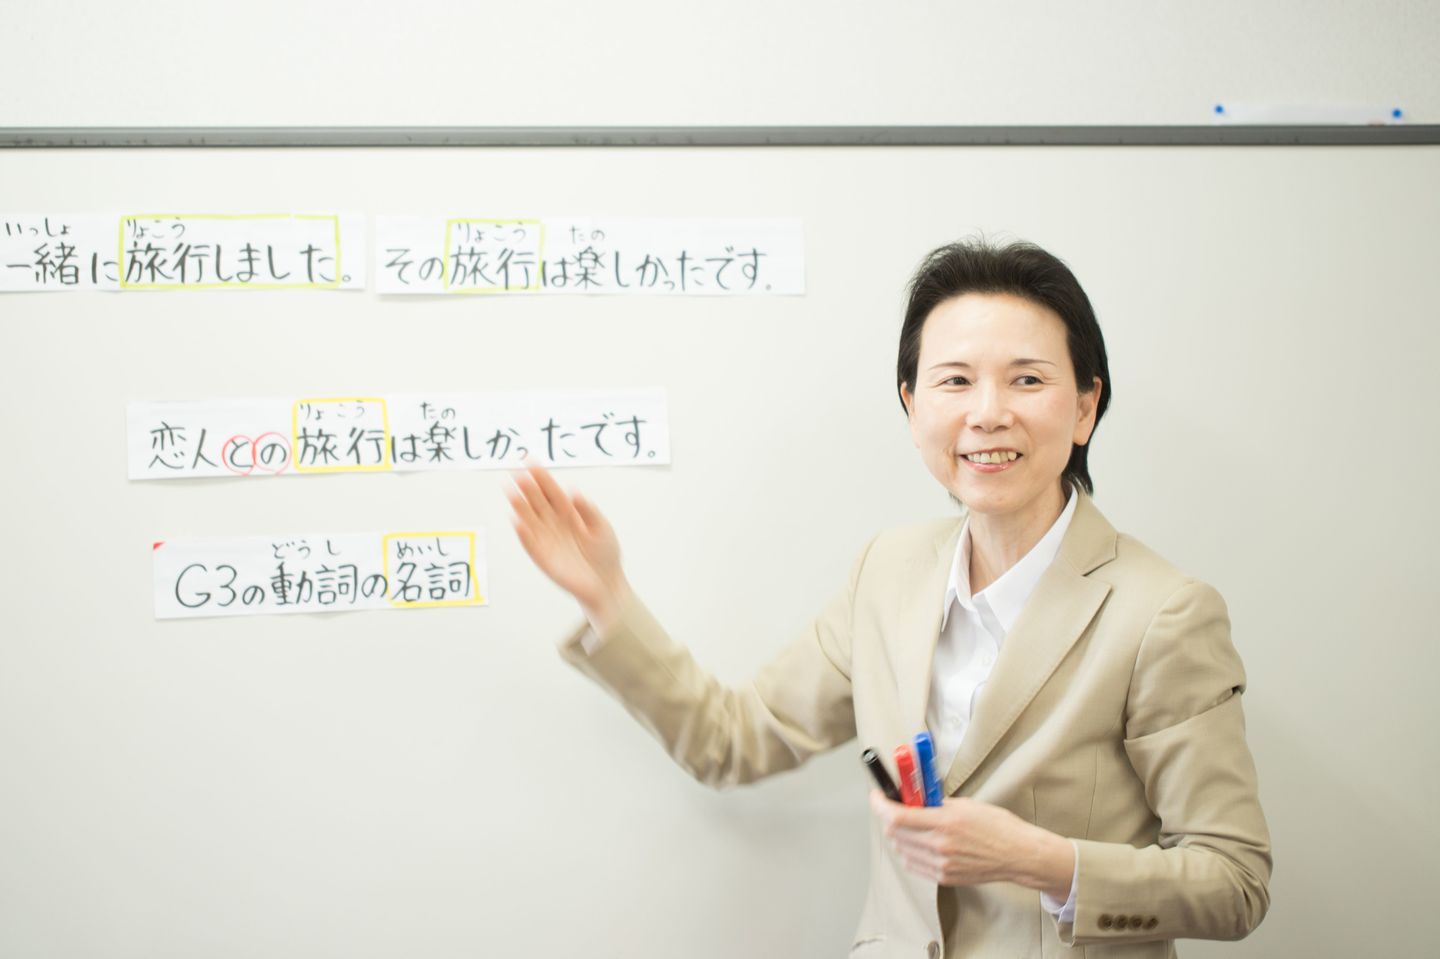 いっしょ りょこう
一緒に旅行しました。
りょこう たの
その旅行は楽しかったです。
りょこう たの
恋人との旅行は楽しかったです。
どうし めいし
G3の動詞の名詞